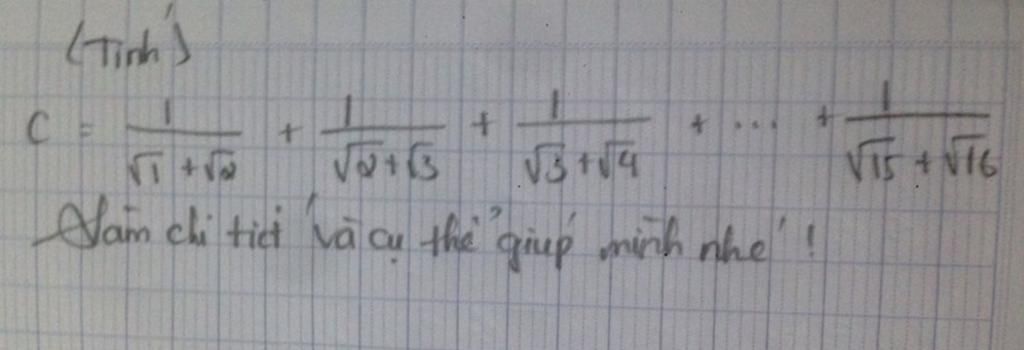 (Tính)
C = 1/(√1 + √2) + 1/(√2 + √3) + 1/(√3 + √4) + ... + 1/(√15 + √16)
Làm chi tiết và cụ thể giúp mình nhé !